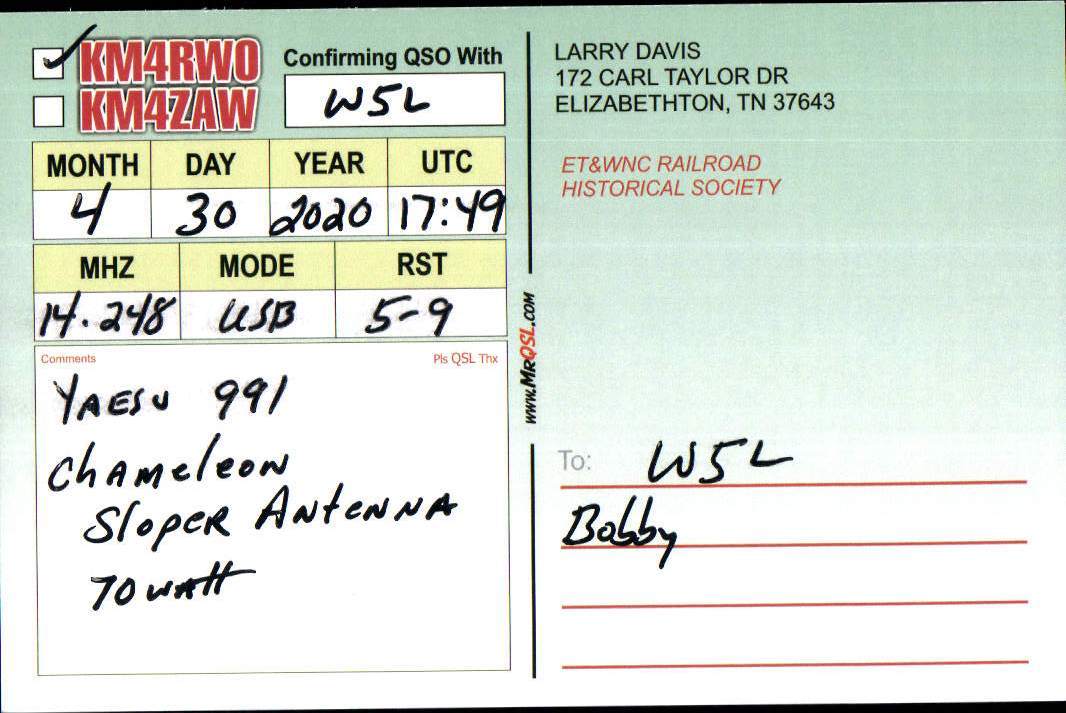 KM4RWO
KM4ZAW
Confirming QSO With
W5L
MONTH DAY YEAR UTC
4 30 2020 17:49
MHZ MODE RST
14.248 USB 5-9
Comments Pls QSL Thx
YAESU 991
Chameleon
Sloper Antenna
70 watt
www.MrQSL.com
LARRY DAVIS
172 CARL TAYLOR DR
ELIZABETHTON, TN 37643
ET&WNC RAILROAD
HISTORICAL SOCIETY
To: W5L
Bobby